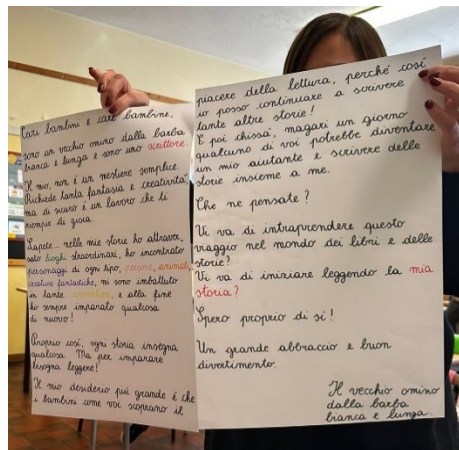 Cari bambini e care bambine,
sono un vecchio omino dalla barba
bianca e lunga e sono uno scrittore.
Il mio, non è un mestiere semplice.
Richiede tanta fantasia e creatività,
ma di sicuro è un lavoro che ti
riempie di gioia.
Sapete... nelle mie storie ho attraver
sato luoghi straordinari, ho incontrato
personaggi di ogni tipo, persone, animali,
creature fantastiche, mi sono imbattuto
in tante avventure, e alla fine
ho sempre imparato qualcosa
di nuovo!
Proprio così, ogni storia insegna
qualcosa. Ma per imparare
bisogna leggere!
Il mio desiderio più grande è che
i bambini come voi scoprano il
piacere della lettura, perché così
io posso continuare a scrivere
tante altre storie!
E poi chissà, magari un giorno
qualcuno di voi potrebbe diventare
un mio aiutante e scrivere delle
storie insieme a me.
Che ne pensate?
Vi va di intraprendere questo
viaggio nel mondo dei libri e delle
storie?
Vi va di iniziare leggendo la mia
storia?
Spero proprio di sì!
Un grande abbraccio e buon
divertimento.
Il vecchio omino
dalla barba
bianca e lunga.